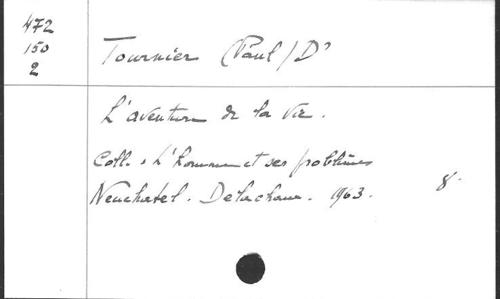 472
150
2
Tournier (Paul) Dr
L'aventure de la vie.
Coll. "L'homme et ses problèmes
Neuchatel. Delachaux. 1963. 8°